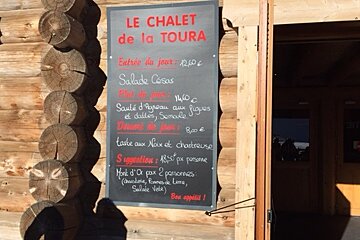 LE CHALET
de la TOURA
Entrée du jour : 12,60€
Salade César
Plat du jour : 14,60
Sauté d'Agneau aux figues
et dattes, Semoule
Dessert du jour : 8,00€
Tarte aux Noix et chartreuse
Suggestion : 18,50 px personne
Mont d'Or pour 2 personnes
(Charcuterie, Pommes de terre,
Salade Verte)
Bon appétit !